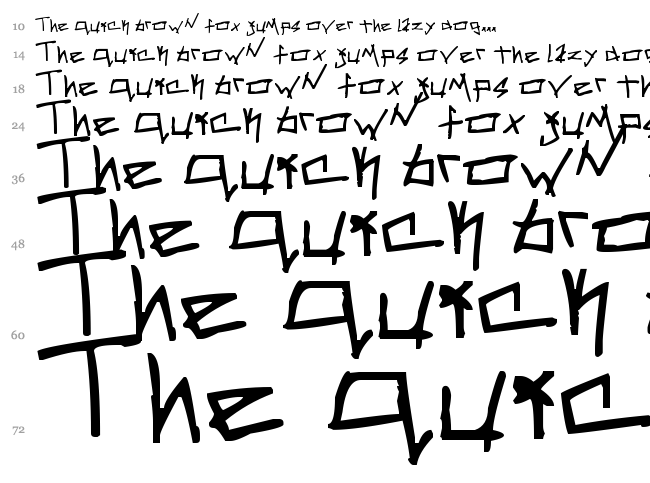 10 The quick brown fox jumps over the lazy dog...
14 The quick brown fox jumps over the lazy dog
18 The quick brown fox jumps over th
24 The quick brown fox jumps
36 The quick brown
48 The quick bro
60 The quick
72 The quic